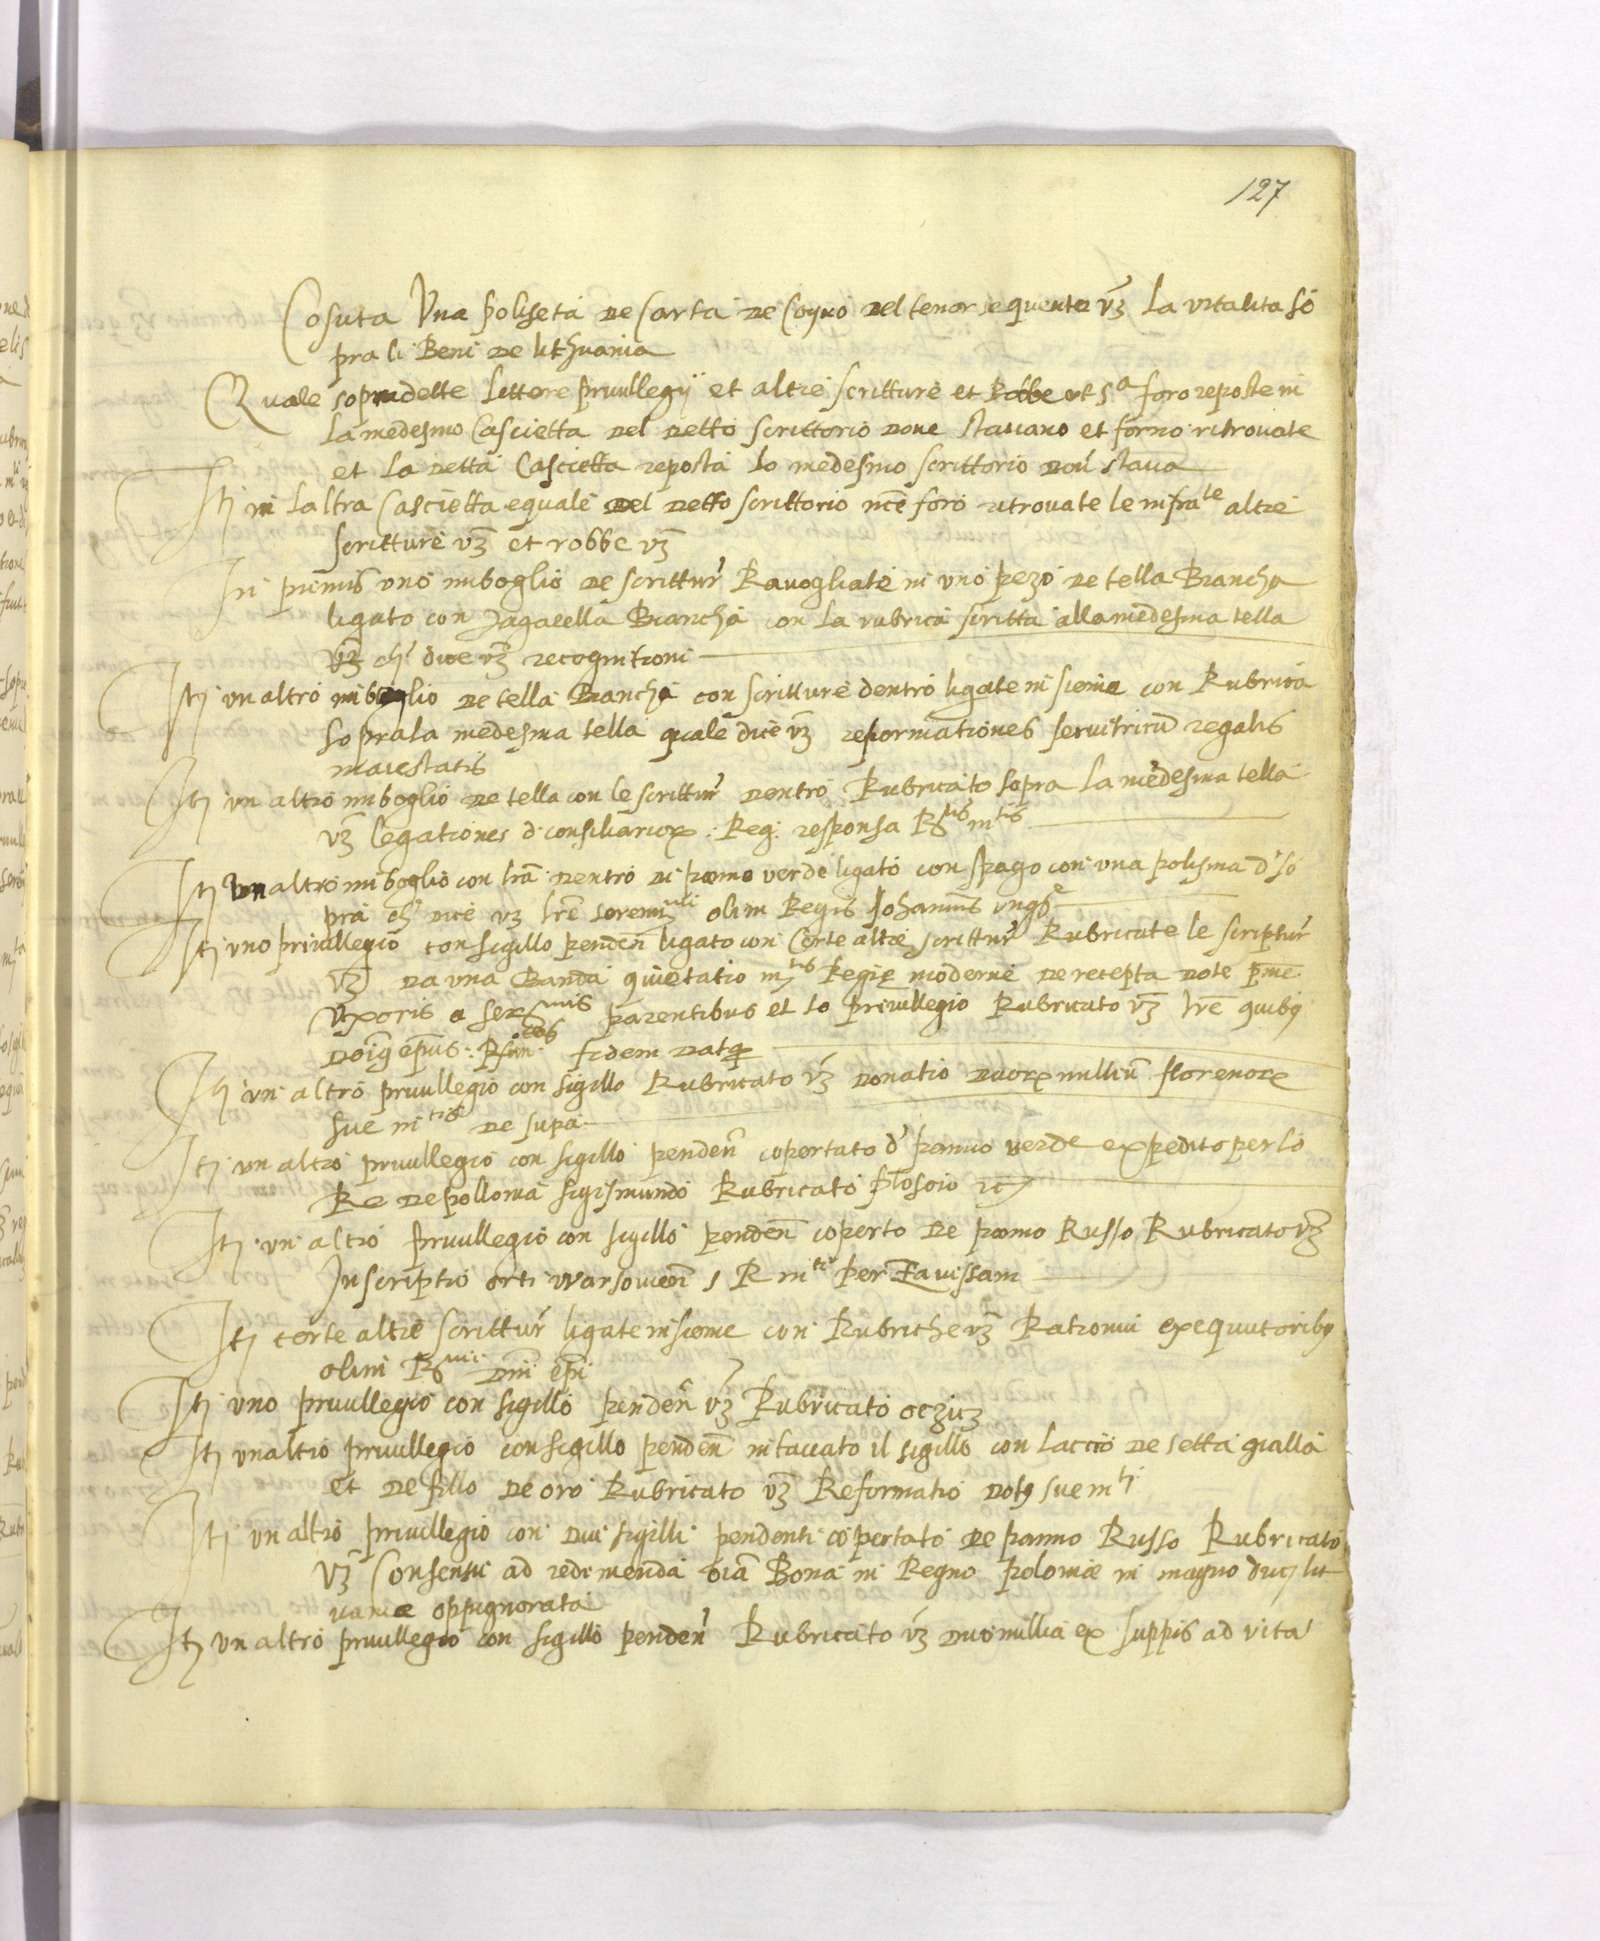 127
Cosuta Una poliseta de Carta de Coyro del tenor sequente vz La vitalita so
pra li Beni de lithuania
Quale sopradette littere priuillegij et altre scritture et Robbe ut sᵃ foro reposte in
La medesmo Cascietta del detto scrittorio doue stauano et forno ritrouate
et la detta Cascietta reposta lo medesmo scrittorio dou' staua
Itj in laltra Cascietta equale del detto scrittorio nce foro ritrouate le infraᵗᵉ altre
scritture vz et robbe vz
In primis uno imboglio de scrittur' Rauogliate in uno pezo de tella Biancha
ligato con zagarella Biancha con la rubrica scritta alla medesma tella
vz ch' dice vz recognitioni
Itj un altro imboglio de tella Biancha con scritture dentro ligate insieme con Rubrica
sopra la medesma tella quale dice vz reformationes seruitricu regalis
maiestatis
Itj un altro imboglio de tella con le scrittur' dentro Rubricato sopra la medesma tella
vz legationes d consiliarior Reg. responsa Rᵗⁱˢ mᵗⁱˢ
Itj un altro imboglio con lra dentro di panno verde ligato con spago con una polisina d' so
pra ch' dice vz lre seremi olim Regis Johannis ung
Itj uno priuillegio con sigillo penden ligato con Certe altre scrittur' Rubricate le scriptur'
vz da una Banda quietatio mᵗⁱˢ Regie moderne de recepta dote pme
uxoris a serᵐⁱˢ parentibus et lo priuillegio Rubricato vz lre quibq
fidem dat
Itj un altro priuillegio con sigillo Rubricato vz donatio duor milliu florenor
sue mᵗⁱ de supa
Itj un altro priuillegio con sigillo penden' copertato d' panno verde expedito per lo
Re de pollonia sigismundo Rubricato
Itj un altro priuillegio con sigillo penden coperto de panno Russo Rubricato vz
Inscriptio orti warsouien s R mᵗⁱ per
Itj certe altre scrittur' ligate insieme con Rubriche vz Rationu exequutoribq
olim Rᵐⁱ Dni epi
Itj uno priuillegio con sigillo penden' vz Rubricato
Itj un altro priuillegio con sigillo penden intaccato il sigillo con laccio de setta gialla
et de fillo de oro Rubricato vz Reformatio dotis sue mᵗⁱ
Itj un altro priuillegio con dui sigilli pendenti copertato de panno Russo Rubricato
vz Consensu ad redimenda oia Bona in Regno polonie in magno duc lit
uanie oppignorata
Itj un altro priuillegio con sigillo penden' Rubricato vz duo millia ex suppis ad vita